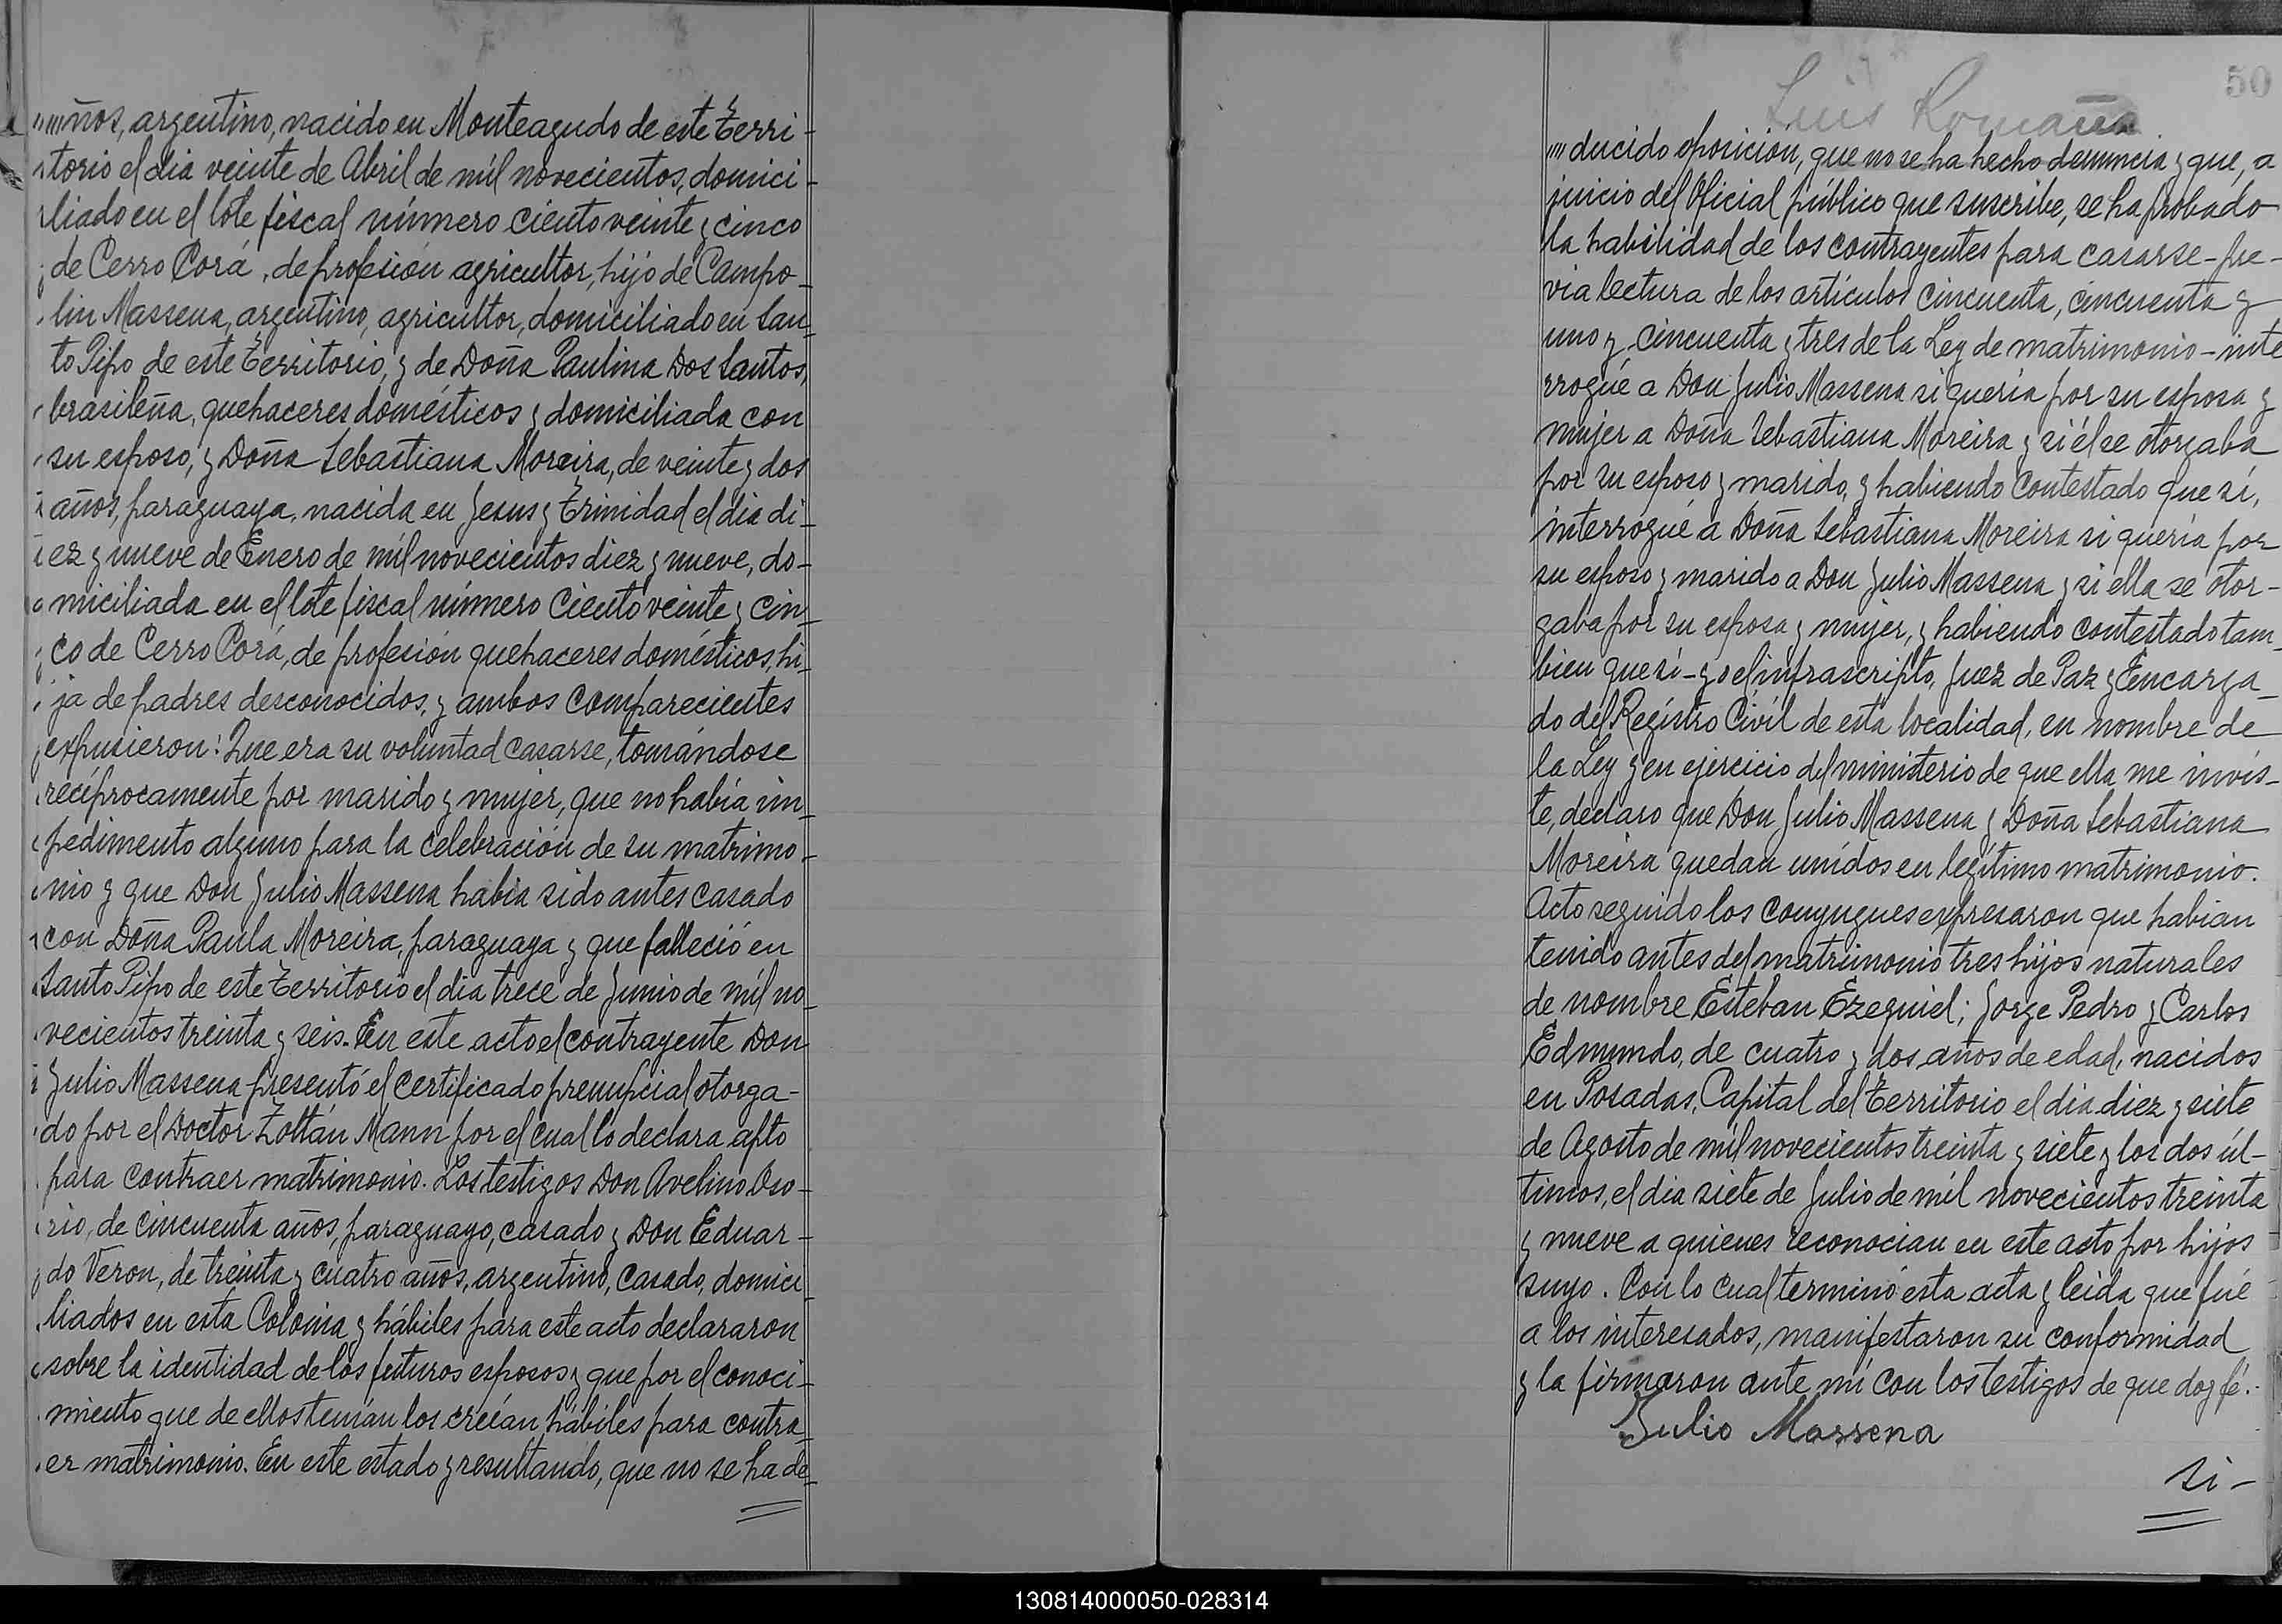 """ ños, argentino, nacido en Monteagudo de este Terri-
torio el dia veinte de Abril de mil novecientos, domici-
liado en el lote fiscal número ciento veinte y cinco
de Cerro Corá, de profesión agricultor, hijo de Campo-
lin Massena, argentino, agricultor, domiciliado en San-
to Pipo de este Territorio, y de Doña Paulina Dos Santos,
brasileña, quehaceres domésticos y domiciliada con
su esposo, y Doña Sebastiana Moreira, de veinte y dos
años, paraguaya, nacida en Jesus y Trinidad el dia di-
ez y nueve de Enero de mil novecientos diez y nueve, do-
miciliada en el lote fiscal número ciento veinte y cin-
co de Cerro Corá, de profesión quehaceres domésticos, hi-
ja de padres desconocidos, y ambos comparecientes
expusieron: Que era su voluntad casarse, tomándose
recíprocamente por marido y mujer, que no había im-
pedimento alguno para la celebración de su matrimo-
nio y que Don Julio Massena habia sido antes casado
con Doña Paula Moreira, paraguaya y que falleció en
Santo Pipo de este Territorio el dia trece de Junio de mil no-
vecientos treinta y seis. En este acto el contrayente Don
Julio Massena presentó el certificado prenupcial otorga-
do por el Doctor Zoltán Mann por el cual lo declara apto
para contraer matrimonio. Los testigos Don Avelino Oso-
rio, de cincuenta años, paraguayo, casado y Don Eduar-
do Veron, de treinta y cuatro años, argentino, casado, domici-
liados en esta Colonia y hábiles para este acto declararon
sobre la identidad de los futuros esposos y que por el conoci-
miento que de ellos tenían los creían hábiles para contra-
er matrimonio. En este estado y resultando, que no se ha de-
Luis Romaña
50
""" ducido oposición, que no se ha hecho denuncia y que, a
juicio del Oficial público que suscribe, se ha probado
la habilidad de los contrayentes para casarse - pre-
via lectura de los artículos cincuenta, cincuenta y
uno y cincuenta y tres de la Ley de matrimonio - inte
rrogué a Don Julio Massena si quería por su esposa y
mujer a Doña Sebastiana Moreira y si él se otorgaba
por su esposo y marido, y habiendo contestado que sí,
interrogué a Doña Sebastiana Moreira si quería por
su esposo y marido a Don Julio Massena y si ella se otor-
gaba por su esposa y mujer, y habiendo contestado tam-
bien que sí - yo el infrascripto, Juez de Paz y Encarga-
do del Registro Civil de esta localidad, en nombre de
la Ley y en ejercicio del ministerio de que ella me invis-
te, declaro que Don Julio Massena y Doña Sebastiana
Moreira quedan unidos en legítimo matrimonio.
Acto seguido los conyugues expresaron que habian
tenido antes del matrimonio tres hijos naturales
de nombre Esteban Ezequiel; Jorge Pedro y Carlos
Edmundo, de cuatro y dos años de edad, nacidos
en Posadas, Capital del Territorio el dia diez y siete
de Agosto de mil novecientos treinta y siete y los dos úl-
timos, el dia siete de Julio de mil novecientos treinta
y nueve a quienes reconocian en este acto por hijos
suyo. Con lo cual terminó esta acta y leida que fué
a los interesados, manifestaron su conformidad
y la firmaron ante mí con los testigos de que doy fé.-
Julio Massena
si-
130814000050-028314